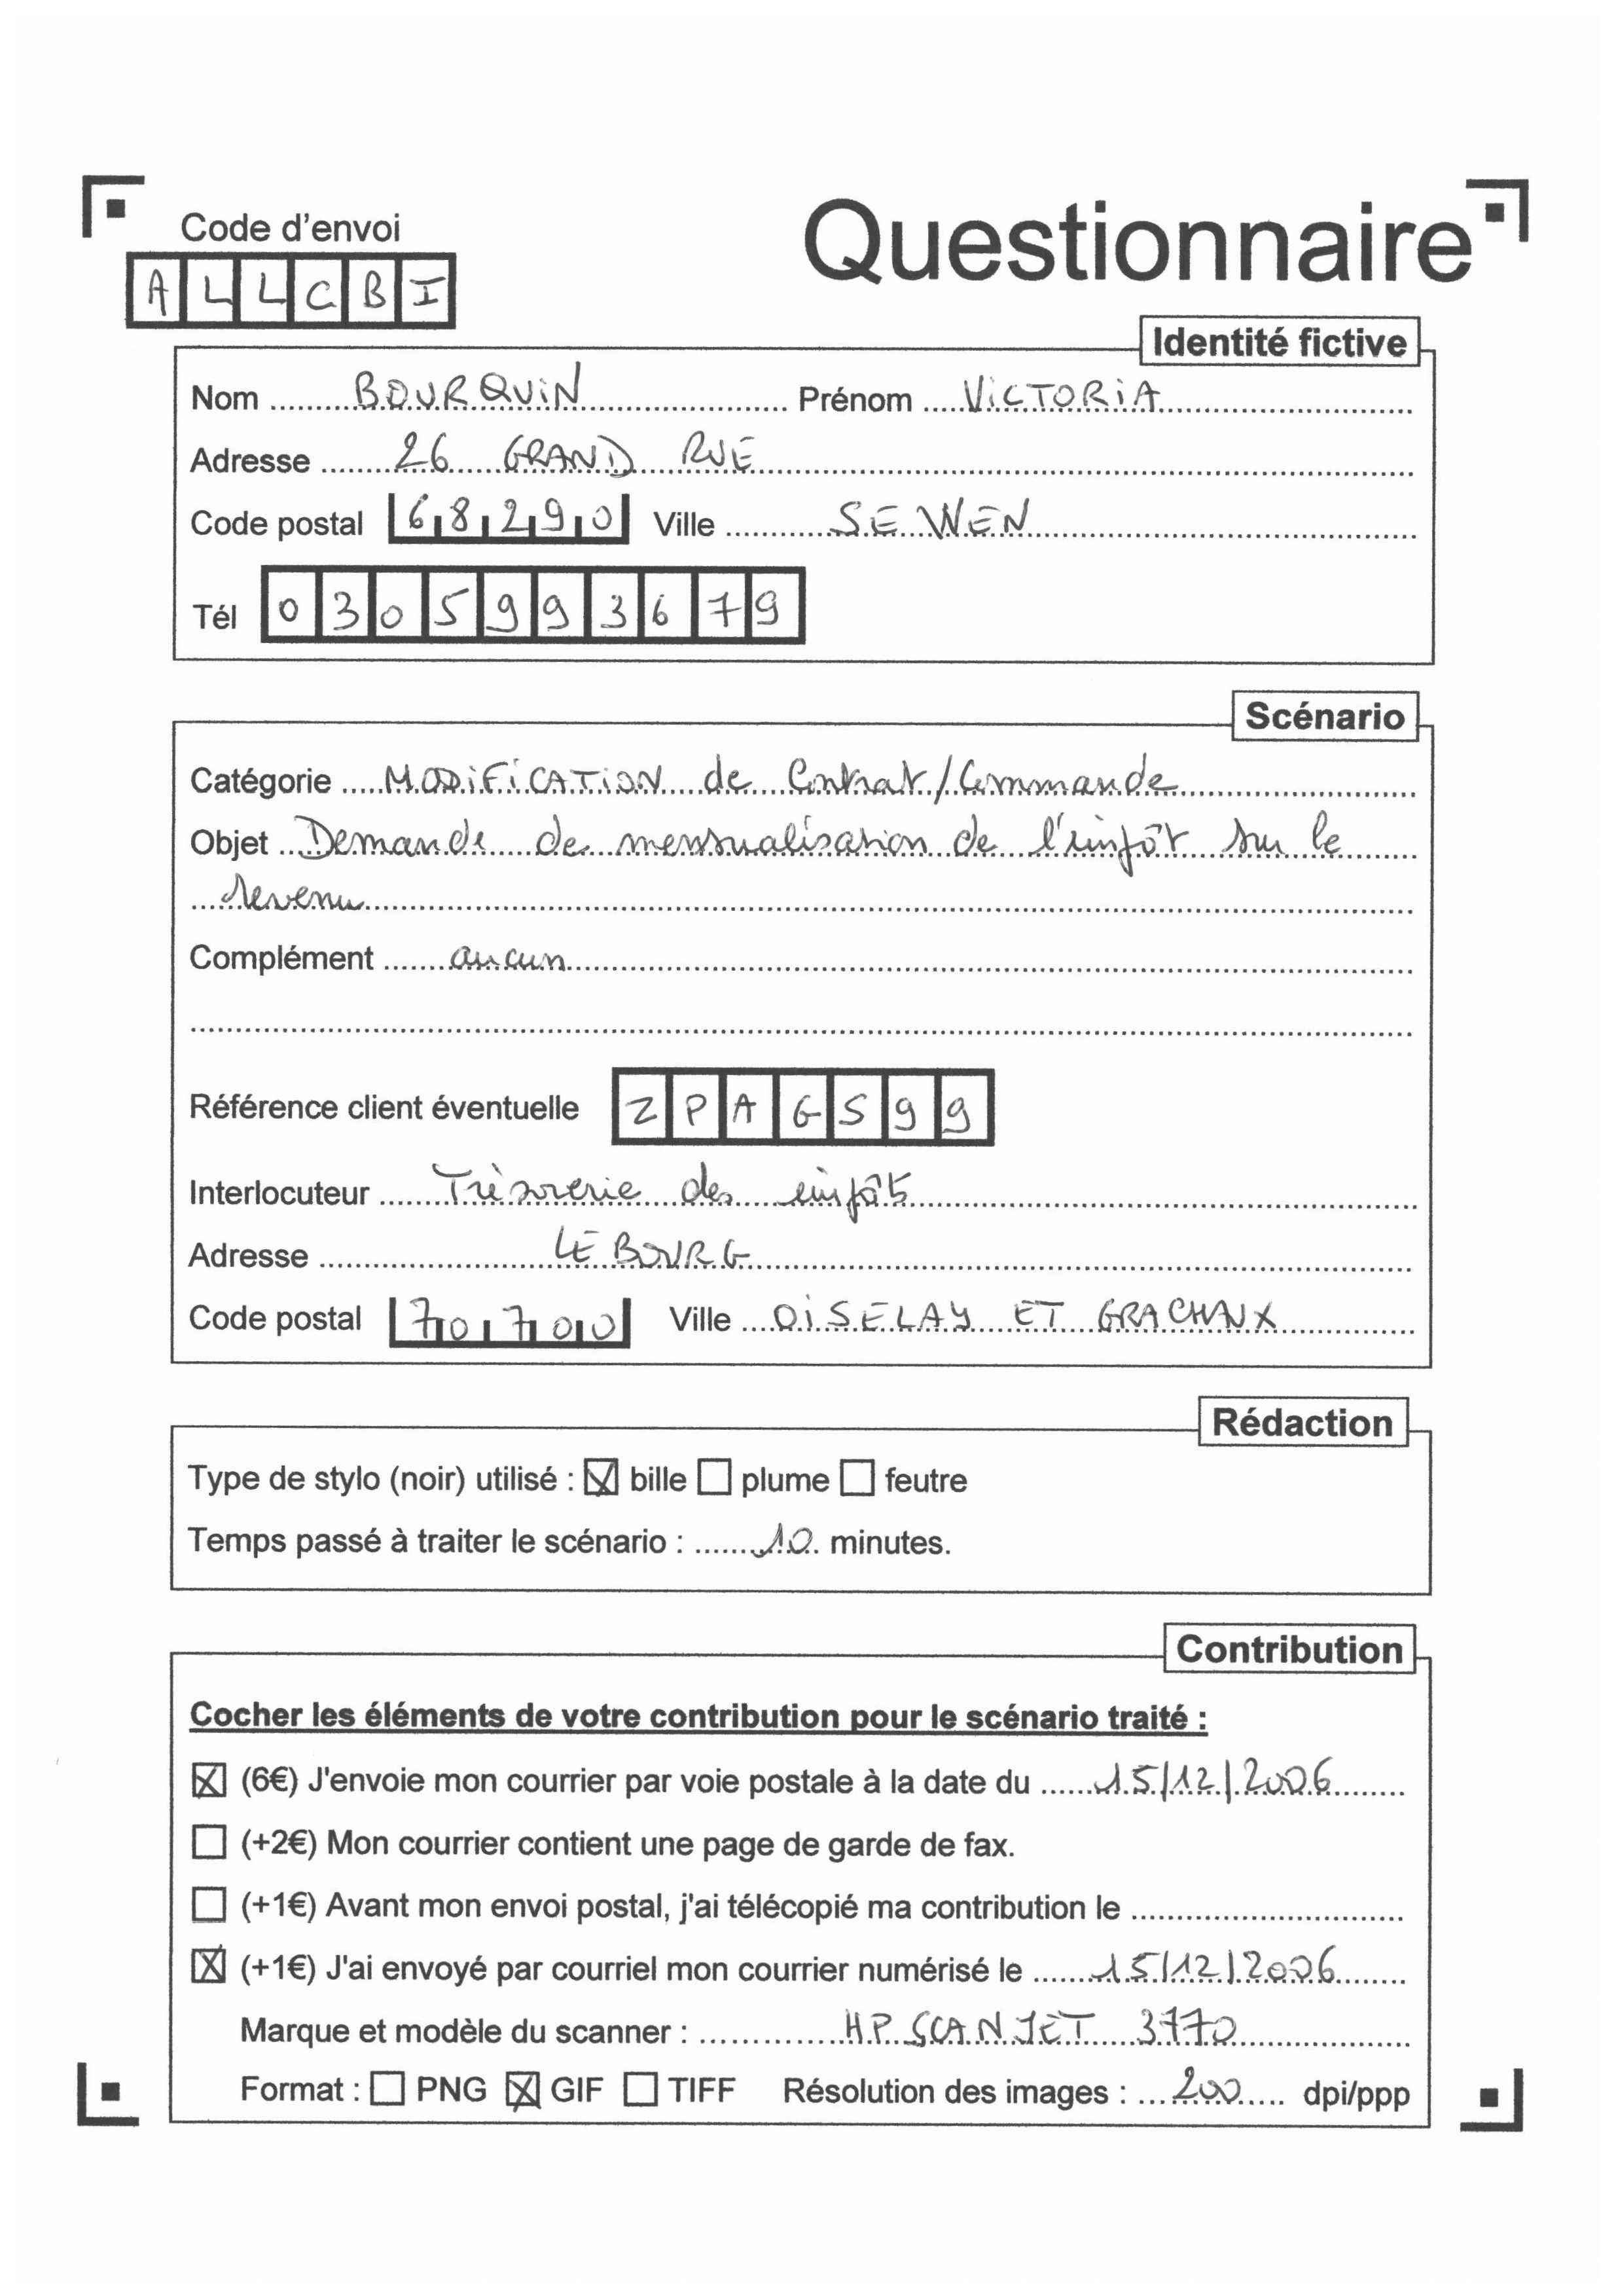 Code d'envoi
Questionnaire
ALLCBI
Identité fictive
Nom BOURQUIN Prénom VICTORIA
Adresse 26 GRAND RUE
Code postal 68290 Ville SEWEN
Tél 0305993679
Scénario
Catégorie MODIFICATION de Contrat/Commande
Objet Demande de mensualisation de l'impôt sur le
revenu
Complément aucun
Référence client éventuelle ZPAGS99
Interlocuteur Trèsorerie des impôts
Adresse LE BOURG
Code postal 70700 Ville OISELAY ET GRACHAUX
Rédaction
Type de stylo (noir) utilisé : ☒ bille ☐ plume ☐ feutre
Temps passé à traiter le scénario : 10 minutes.
Contribution
Cocher les éléments de votre contribution pour le scénario traité :
☒ (6€) J'envoie mon courrier par voie postale à la date du 15/12/2006
☐ (+2€) Mon courrier contient une page de garde de fax.
☐ (+1€) Avant mon envoi postal, j'ai télécopié ma contribution le
☒ (+1€) J'ai envoyé par courriel mon courrier numérisé le 15/12/2006
Marque et modèle du scanner : HP SCANJET 3770
Format : ☐ PNG ☒ GIF ☐ TIFF Résolution des images : 200 dpi/ppp